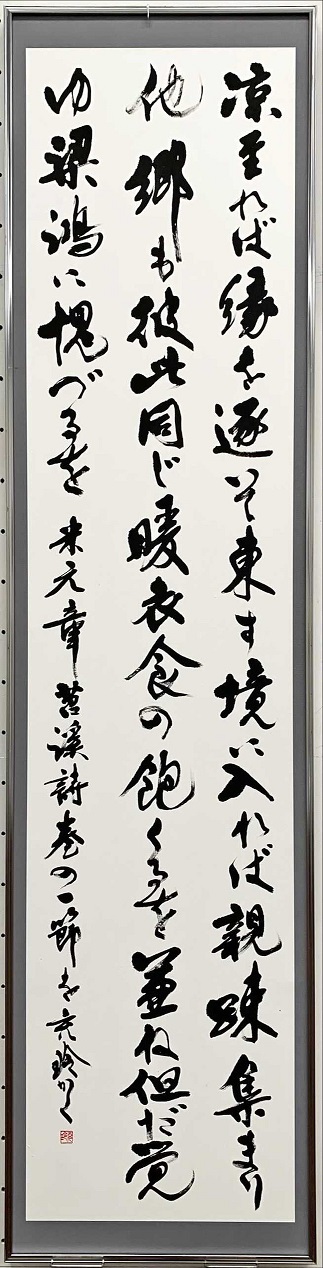 涼至れば縁を逐いて東す境に入れば親疎集まり
他郷も彼此同じ暖衣食の飽くるを兼ね但だ覚
ゆ梁鴻に愧づるを 米元章苕溪詩巻の一節を かく